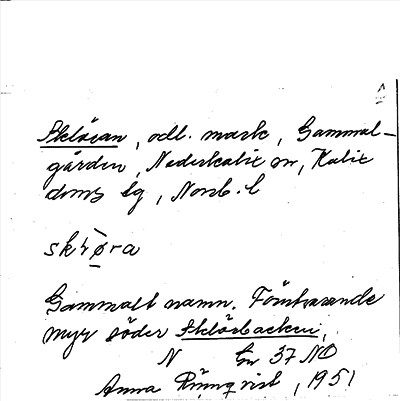 Sklösan, odl. mark, Gammal-
gården, Nederkalix sn, Kalix
doms lg, Norrb. l
Gammalt namn. Förutvarande
myr söder Sklösbacken,
N Gr 37 NO
Anna Rönnqvist, 1951